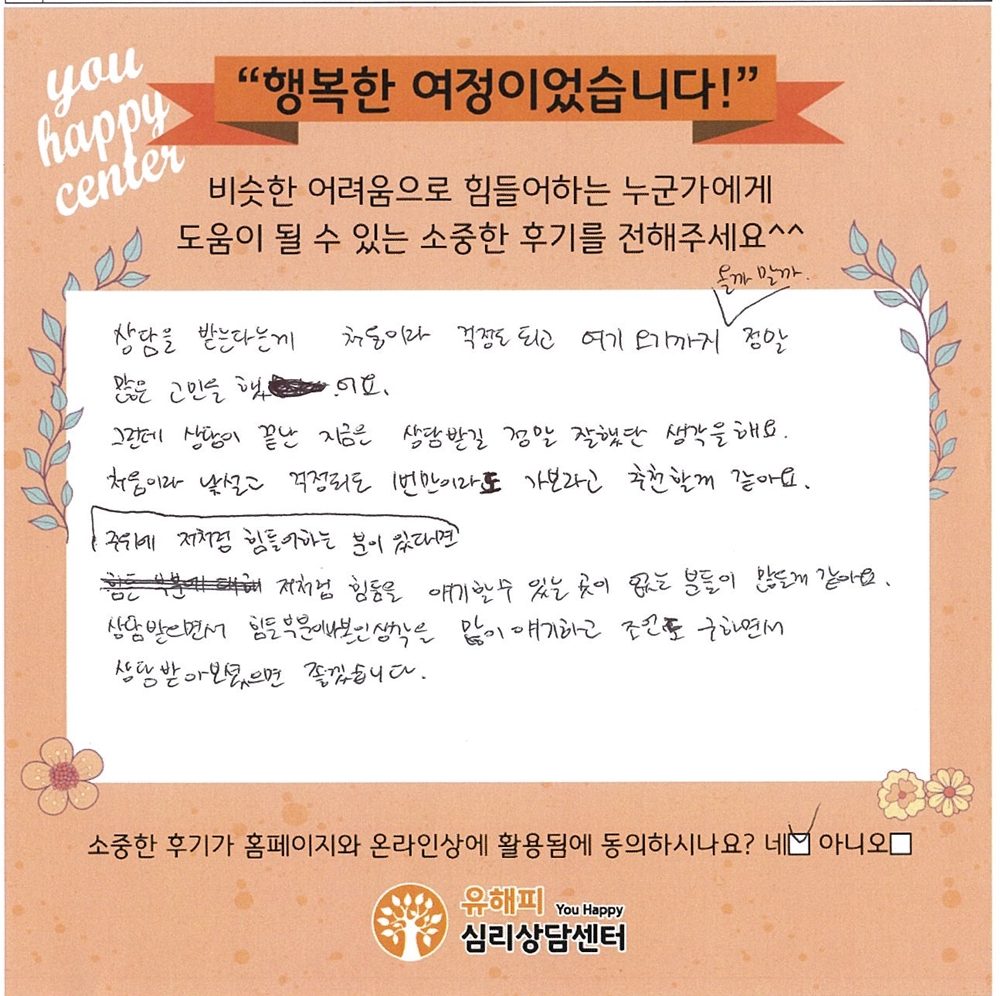 you
happy
center
“행복한 여정이었습니다!”
비슷한 어려움으로 힘들어하는 누군가에게
도움이 될 수 있는 소중한 후기를 전해주세요^^
올까 말까.
상담을 받는다는게 처음이라 걱정도 되고 여기 오기까지 정말
많은 고민을 했어요.
그런데 상담이 끝난 지금은 상담받길 정말 잘했단 생각을해요.
처음이라 낯설고 걱정되도 1번만이라도 가보라고 추천할게 같아요.
주위에 저처럼 힘들어하는 분이 있다면
저처럼 힘듦을 얘기할 수 있는 곳이 없는 분들이 많을게 같아요.
상담받으면서 힘든부분에 본인생각을 많이 얘기하고 조언도 구하면서
상담받아보셨으면 좋겠습니다.
소중한 후기가 홈페이지와 온라인상에 활용됨에 동의하시나요? 네 아니오
유해피 You Happy
심리상담센터